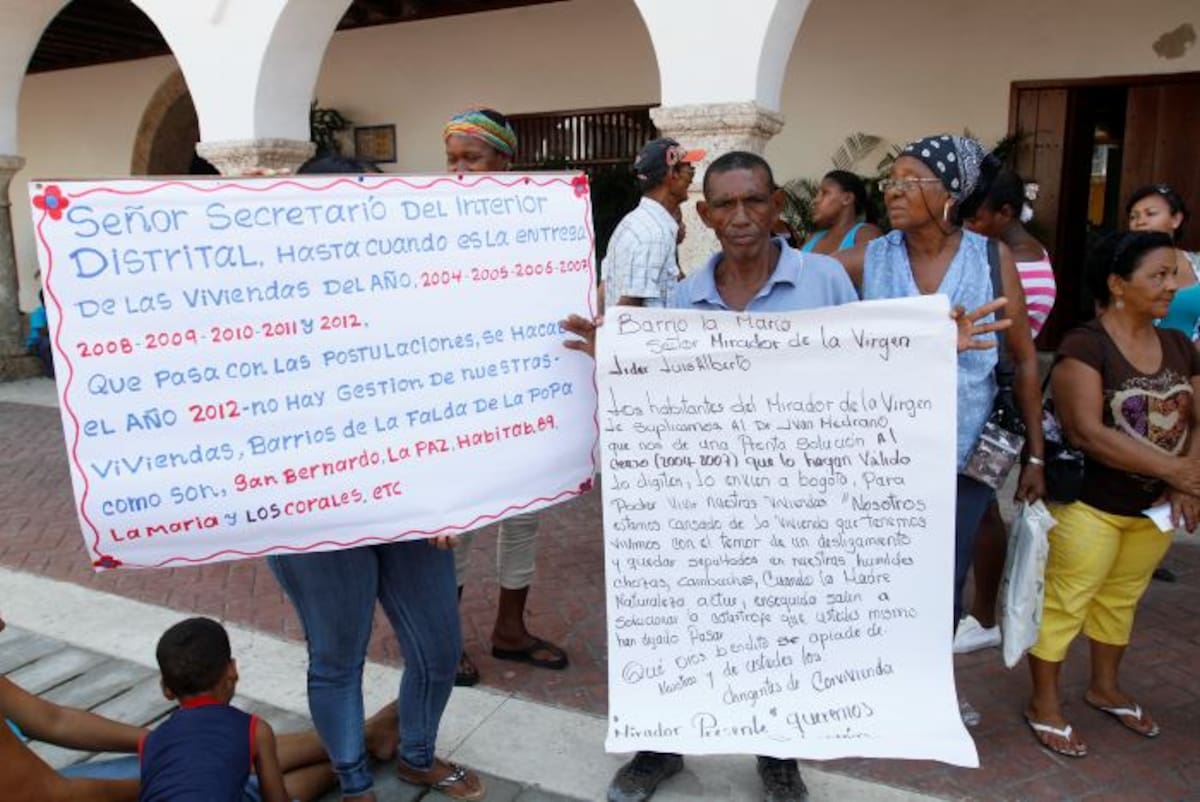 Señor Secretario Del interior
Distrital, Hasta cuando es la entrega
De las Viviendas Del Año, 2004-2005-2006-2007
2008-2009-2010-2011 y 2012,
Que pasa con las postulaciones, se Hacab
el Año 2012-no Hay gestion de nuestras-
Viviendas, Barrios de la Falda De la Popa
como son, San Bernardo, La Paz, Habitab, 89,
La Maria y Los corales, etc
Barrio la Maria
Señor Mirador de la Virgen
Lider Luis Alberto
Los habitantes del Mirador de la Virgen
le suplicamos Al Dr Ivan Medrano
que nos de una Pronta Solución Al
Censo (2004-2007) que lo hagan Valido
lo digiten, lo envien a bogota, Para
Poder Vivir nuestras Viviendas "Nosotros
estamos cansado de la Vivienda que tenemos
vivimos con el temor de un desligamiento
y quedar sepultados en nuestras humildes
chozas, cambuches, Cuando la Madre
Naturaleza actue, enseguida salen a
solucionar la catastrofe que ustedes mismo
han dejado Pasar
Qué Dios bendito se apiade de
Nosotros y de ustedes los
dirigentes de Convivienda
"Mirador Presente" queremos